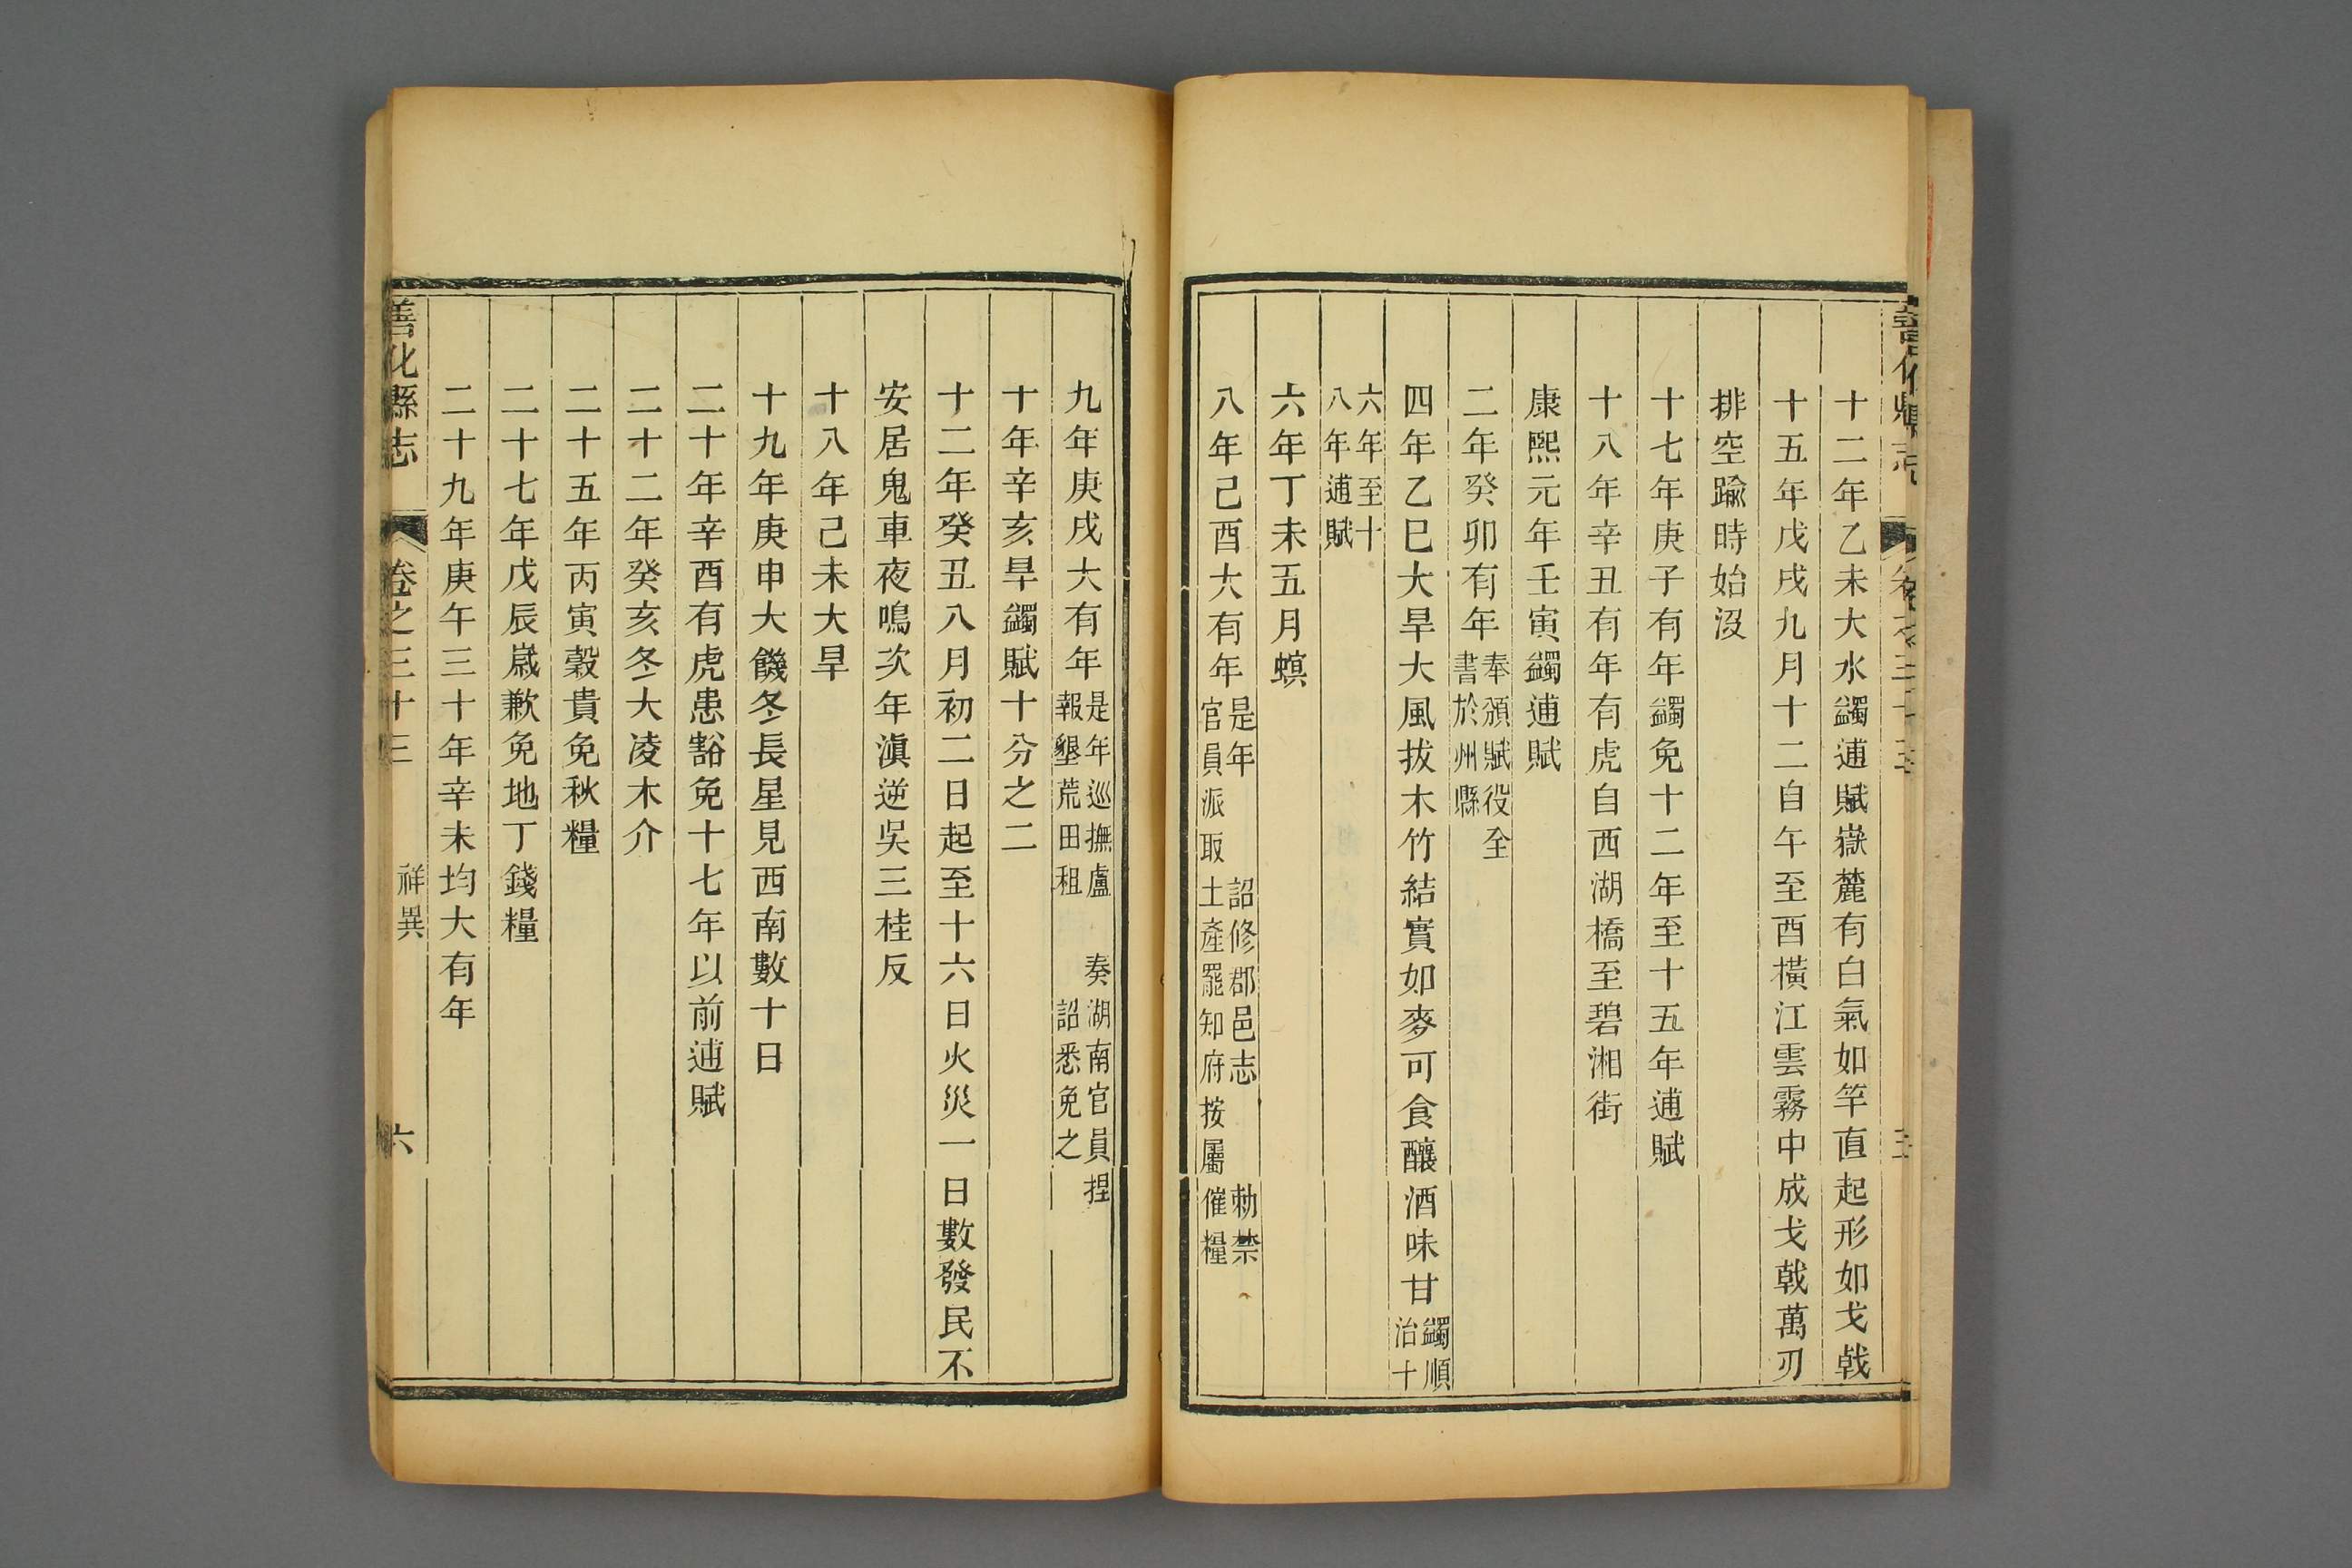 十二年乙未大水蠲逋賦嶽麓有白氣如竿直起形如戈戟
十五年戊戌九月十二自午至酉橫江雲霧中成戈戟萬刃
排空踰時始沒
十七年庚子有年蠲免十二年至十五年逋賦
十八年辛丑有年有虎自西湖橋至碧湘街
康熙元年壬寅蠲逋賦
二年癸卯有年奉頒賦役全
書於州縣
四年乙巳大旱大風拔木竹結實如麥可食釀酒味甘蠲順
治十
六年至十
八年逋賦
六年丁未五月螟
八年己酉大有年是年 詔修郡邑志 勅禁
官員派取土產罷知府按屬催糧
九年庚戌大有年是年巡撫盧 奏湖南官員捏
報墾荒田租 詔悉免之
十年辛亥旱蠲賦十分之二
十二年癸丑八月初二日起至十六日火災一日數發民不
安居鬼車夜鳴次年滇逆吳三桂反
十八年己未大旱
十九年庚申大饑冬長星見西南數十日
二十年辛酉有虎患豁免十七年以前逋賦
二十二年癸亥冬大凌木介
二十五年丙寅穀貴免秋糧
二十七年戊辰歲歉免地丁錢糧
二十九年庚午三十年辛未均大有年
善化縣志 卷之三十三 祥異 六